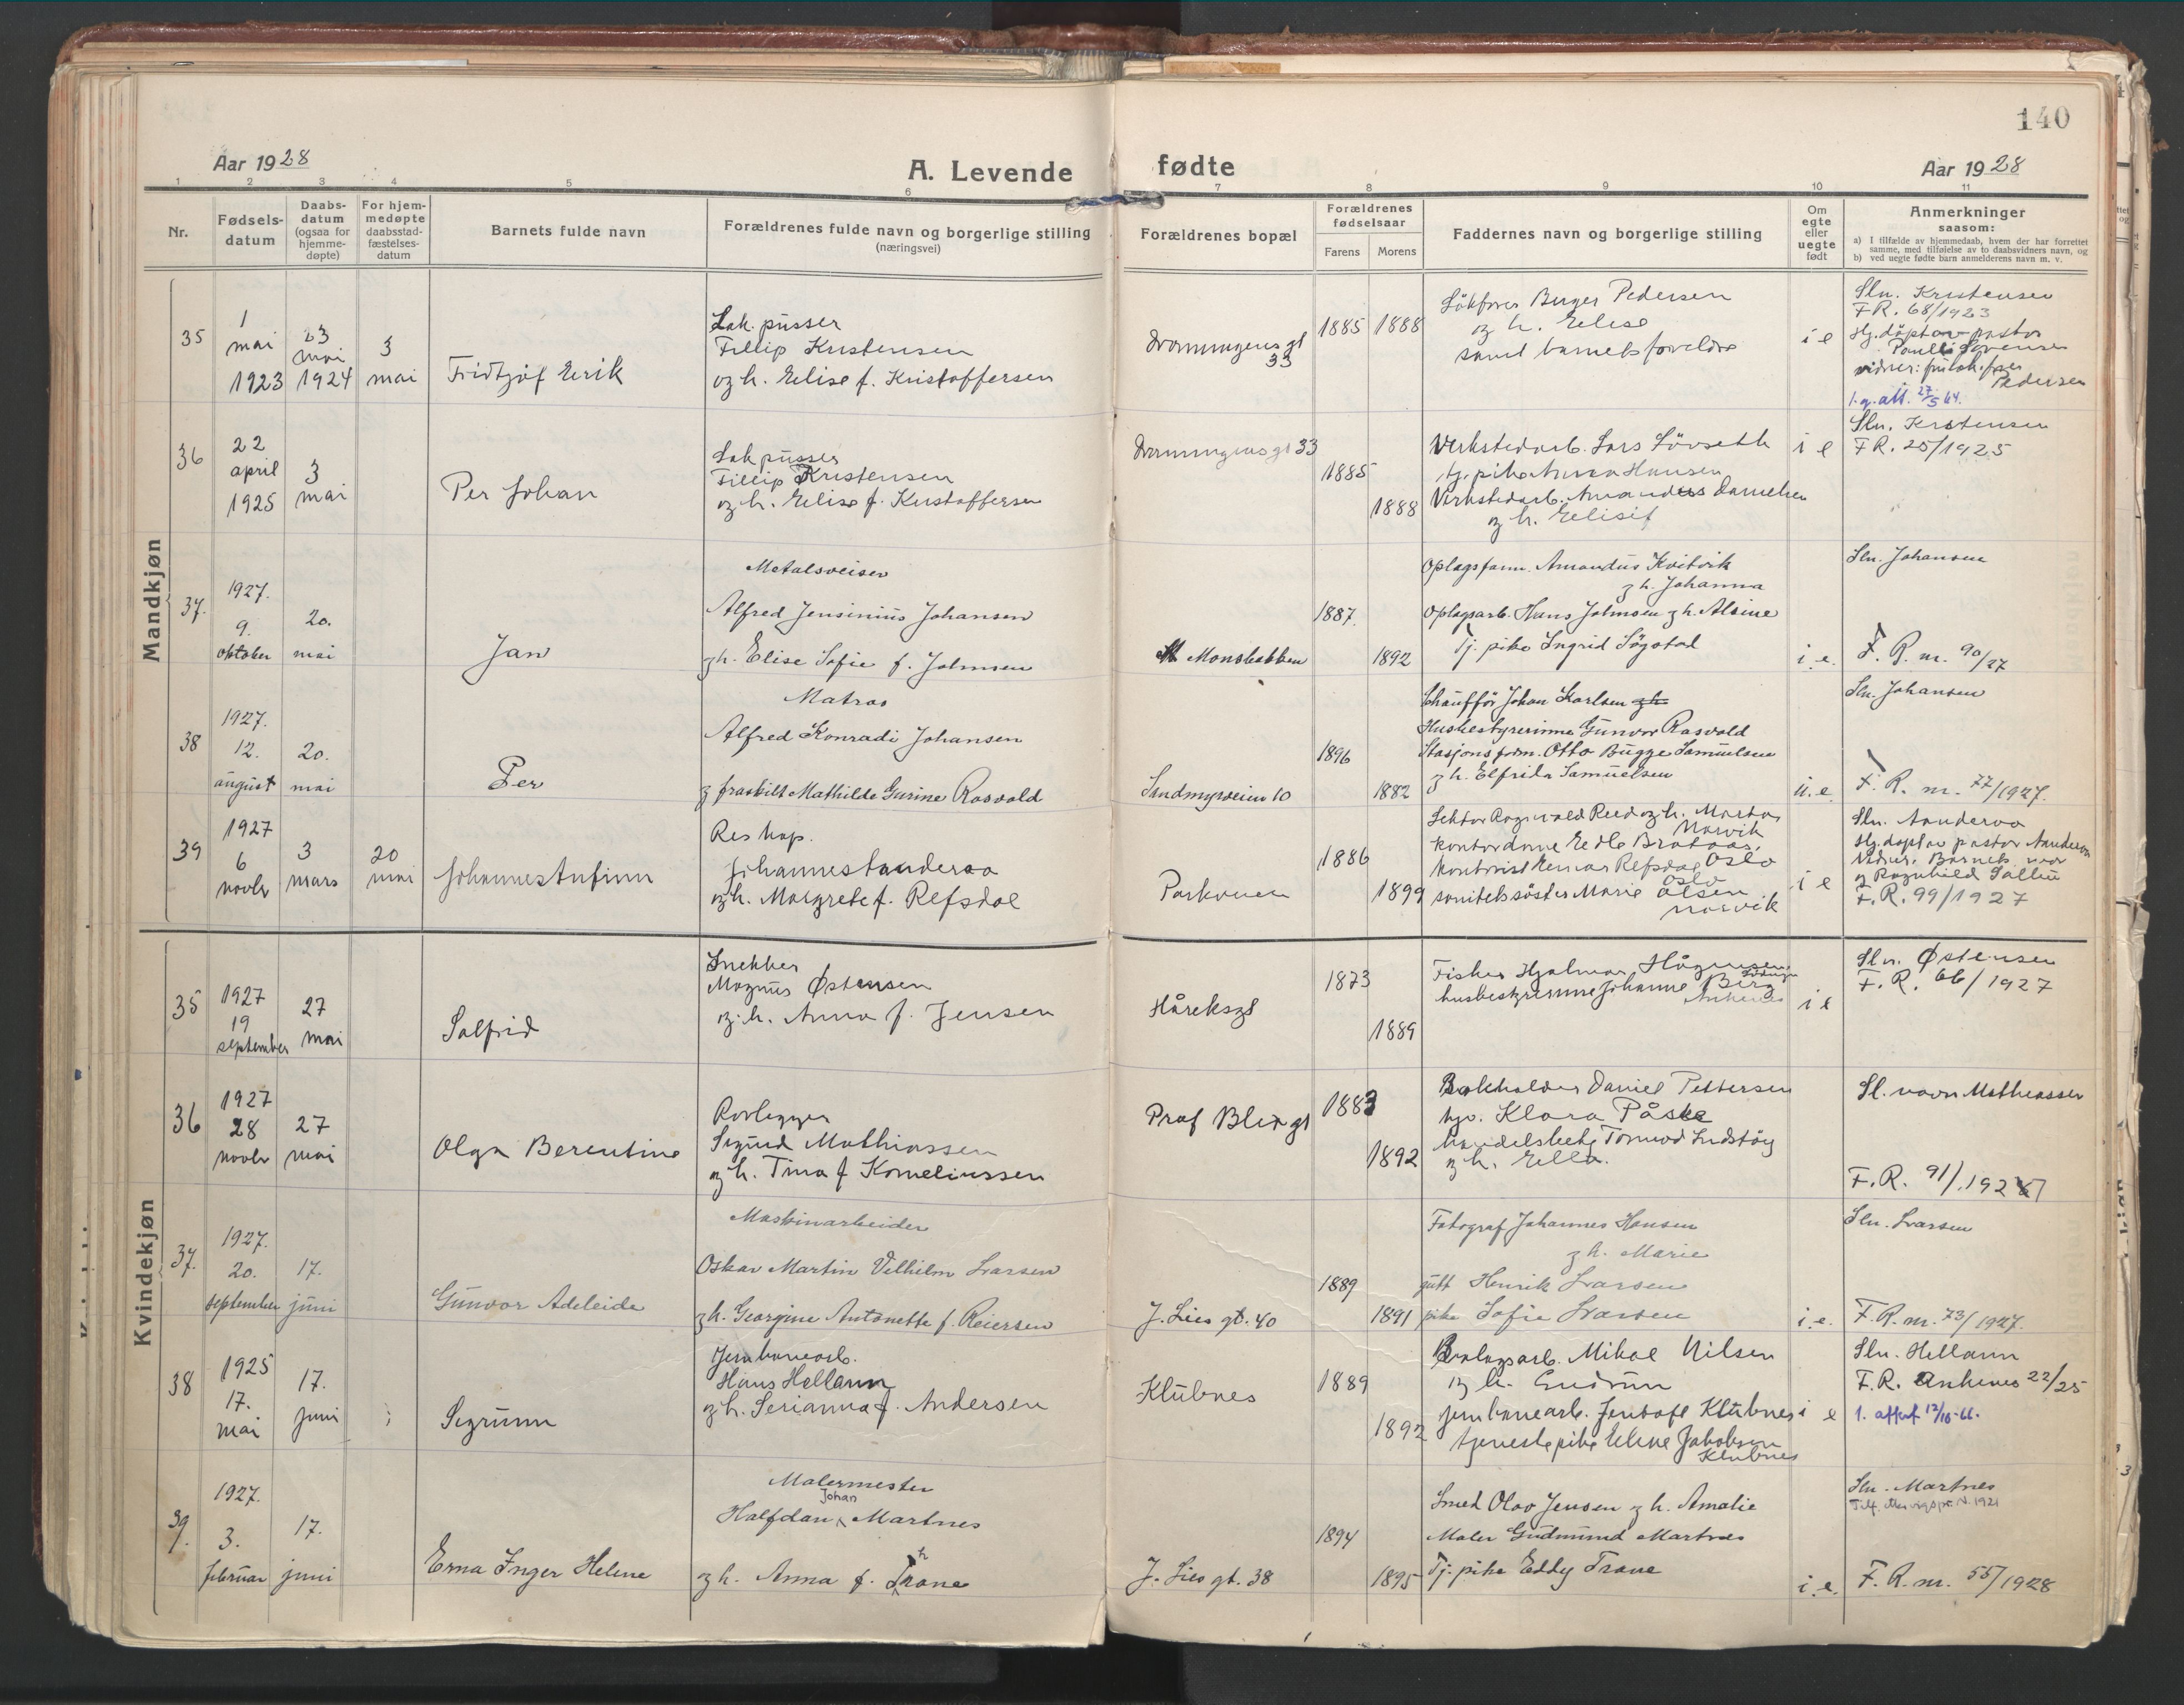 140
Aar 1928
A. Levende fødte
Aar 1928
1 2 3 4 5 6 7 8 9 10 11
Nr.
Fødsels-
datum
Daabs-
datum
(ogsaa for
hjemme-
døpte)
For hjem-
medøpte
daabsstad-
fæstelses-
datum
Barnets fulde navn
Forældrenes fulde navn og borgerlige stilling
(næringsvei)
Forældrenes bopæl
Forældrenes
fødselsaar
Farens
Morens
Faddernes navn og borgerlige stilling
Om
egte
eller
uegte
født
Anmerkninger
saasom:
a) I tilfælde av hjemmedaab, hvem der har forrettet
samme, med tilføielse av to daabsvidners navn, og
b) ved uegte fødte barn anmelderens navn m. v.
Mandkjøn
35
1
mai
1923
23
mai
1924
3
mai
Fridtjof Eirik
Lok. pusser
Fillip Kristensen
og h. Elise f. Kristoffersen
Dronningensgt
33
1885
1888
Lokfører Birger Pedersen
og h. Elise
samt barnets foreldre
i e
Sln. Kristensen
F.R. 68/1923
Hj.døpt av pastor
Sørensen
Pedersen
1.g. att. 27/5 64.
36
22
april
1925
3
mai
Per Johan
Lok pusser
Fillip Kristensen
og h. Elise f. Kristoffersen
Dronningensgt 33
1885
1888
Verkstedarb. Lars Løvseth
tj. pike Anna Hansen
Verkstedarb. Amandus Danielsen
og h. Ellisif
i e
Sln. Kristensen
F R. 25/1925
37.
1927.
9.
oktober
20.
mai
Jan
Metalsveiser
Alfred Jensinius Johansen
og h. Elise Sofie f. Johnsen
Monsbakken
1887.
1892
Oplagsform. Amandus Kvitvik
og h. Johanna
Oplagsarb. Hans Johnsen og h. Alsine
Tj. pike Ingrid Søgstad
i. e.
Sln. Johansen
F. R. nr. 90/27
38
1927.
12.
august
20.
mai
Per
Matros
Alfred Konradi Johansen
og fraskilt Mathilde Gurine Rasvold
Sandmyrveien 10
1896
1882
Chauffør Johan Karlsen og h.
Husbestyrerinne Gunvor Rasvold
Stasjonsfdm. Otto Bugge Samuelsen
og h. Elfrida Samuelsen
u. e.
Sln. Johansen
F. R. nr. 77/1927.
39
1927
6
novbr
3
mars
20
mai
Johannes Anfinn
Res kap.
Johannes Aanderaa
og h. Margrete f. Refsdal
Parkveien
1886
1899
Lektor Ragnvald Reed og h. Marta,
Narvik
kontordame Edle Brataas,
Oslo
kontorist Einar Refsdal
Oslo
sanitetssøster Marie Olsen
Narvik
i e
Sln. Aanderaa
Hj.døpt av pastor Aanderaa
Vidner: Barnets mor
og Ragnhild
F. R. 99/1927
Kvindekjøn
35
1927
19
september
27
mai
Solfrid
Snekker
Magnus Østensen
og h. Anna f. Jensen
Håreksgt
1873
1889
Fisker Hjalmar Hågensen,
husbestyrerinne Johanne Berg
Ankenes
i e
Sln. Østensen
F. R. 66/1927
36
1927
28
novbr
27
mai
Olga Berentine
Rørlegger
Sigurd Mathiassen
og h. Tina f Korneliussen
Prof Bleixgt
1883
1892
Bokholder Daniel Pettersen
hjv. Klara Påske
handelsbetj Tormod Lidstøy
og h. Ella.
Sl. navn Mathiassen
F. R. 91/1927
37.
1927.
20.
september
17.
juni
Gunvor Adeleide
Maskinarbeider
Oskar Martin Vilhelm Larsen
og h. Georgine Antonette f. Reiersen
J. Lies gt. 40
1889
1891
Fotograf Johannes Hansen
og h. Marie
gutt Henrik Larsen
pike Sofie Larsen
i. e.
Sln. Larsen
F. R. nr. 73/1927.
38
1925
17.
mai
17.
juni
Sigrunn
Jernbanearb.
Hans Hellann
og h. Serianna f. Andersen
Klubnes
1889
1892
Anlagsarb. Mikal Nilsen
og h. Gudrun
jernbanearb. Jentoft Klubnes
tjenestepike Eline Jakobsen
Klubnes
i e
Sln. Hellann
F. R. Ankenes 22/25
1. attest 12/10-66.
39.
1927.
3.
februar
17.
juni
Erna Inger Helene
Malermester
Johan
Halfdan Martnes
og h. Anna f. Thrane
J. Lies gt. 38
1894
1895
Smed Olav Jensen og h. Amalie
Maler Gudmund Martnes
Tj. pike Eddy Trane
i. e.
Sln. Martnes
F. R. nr. 55/1928